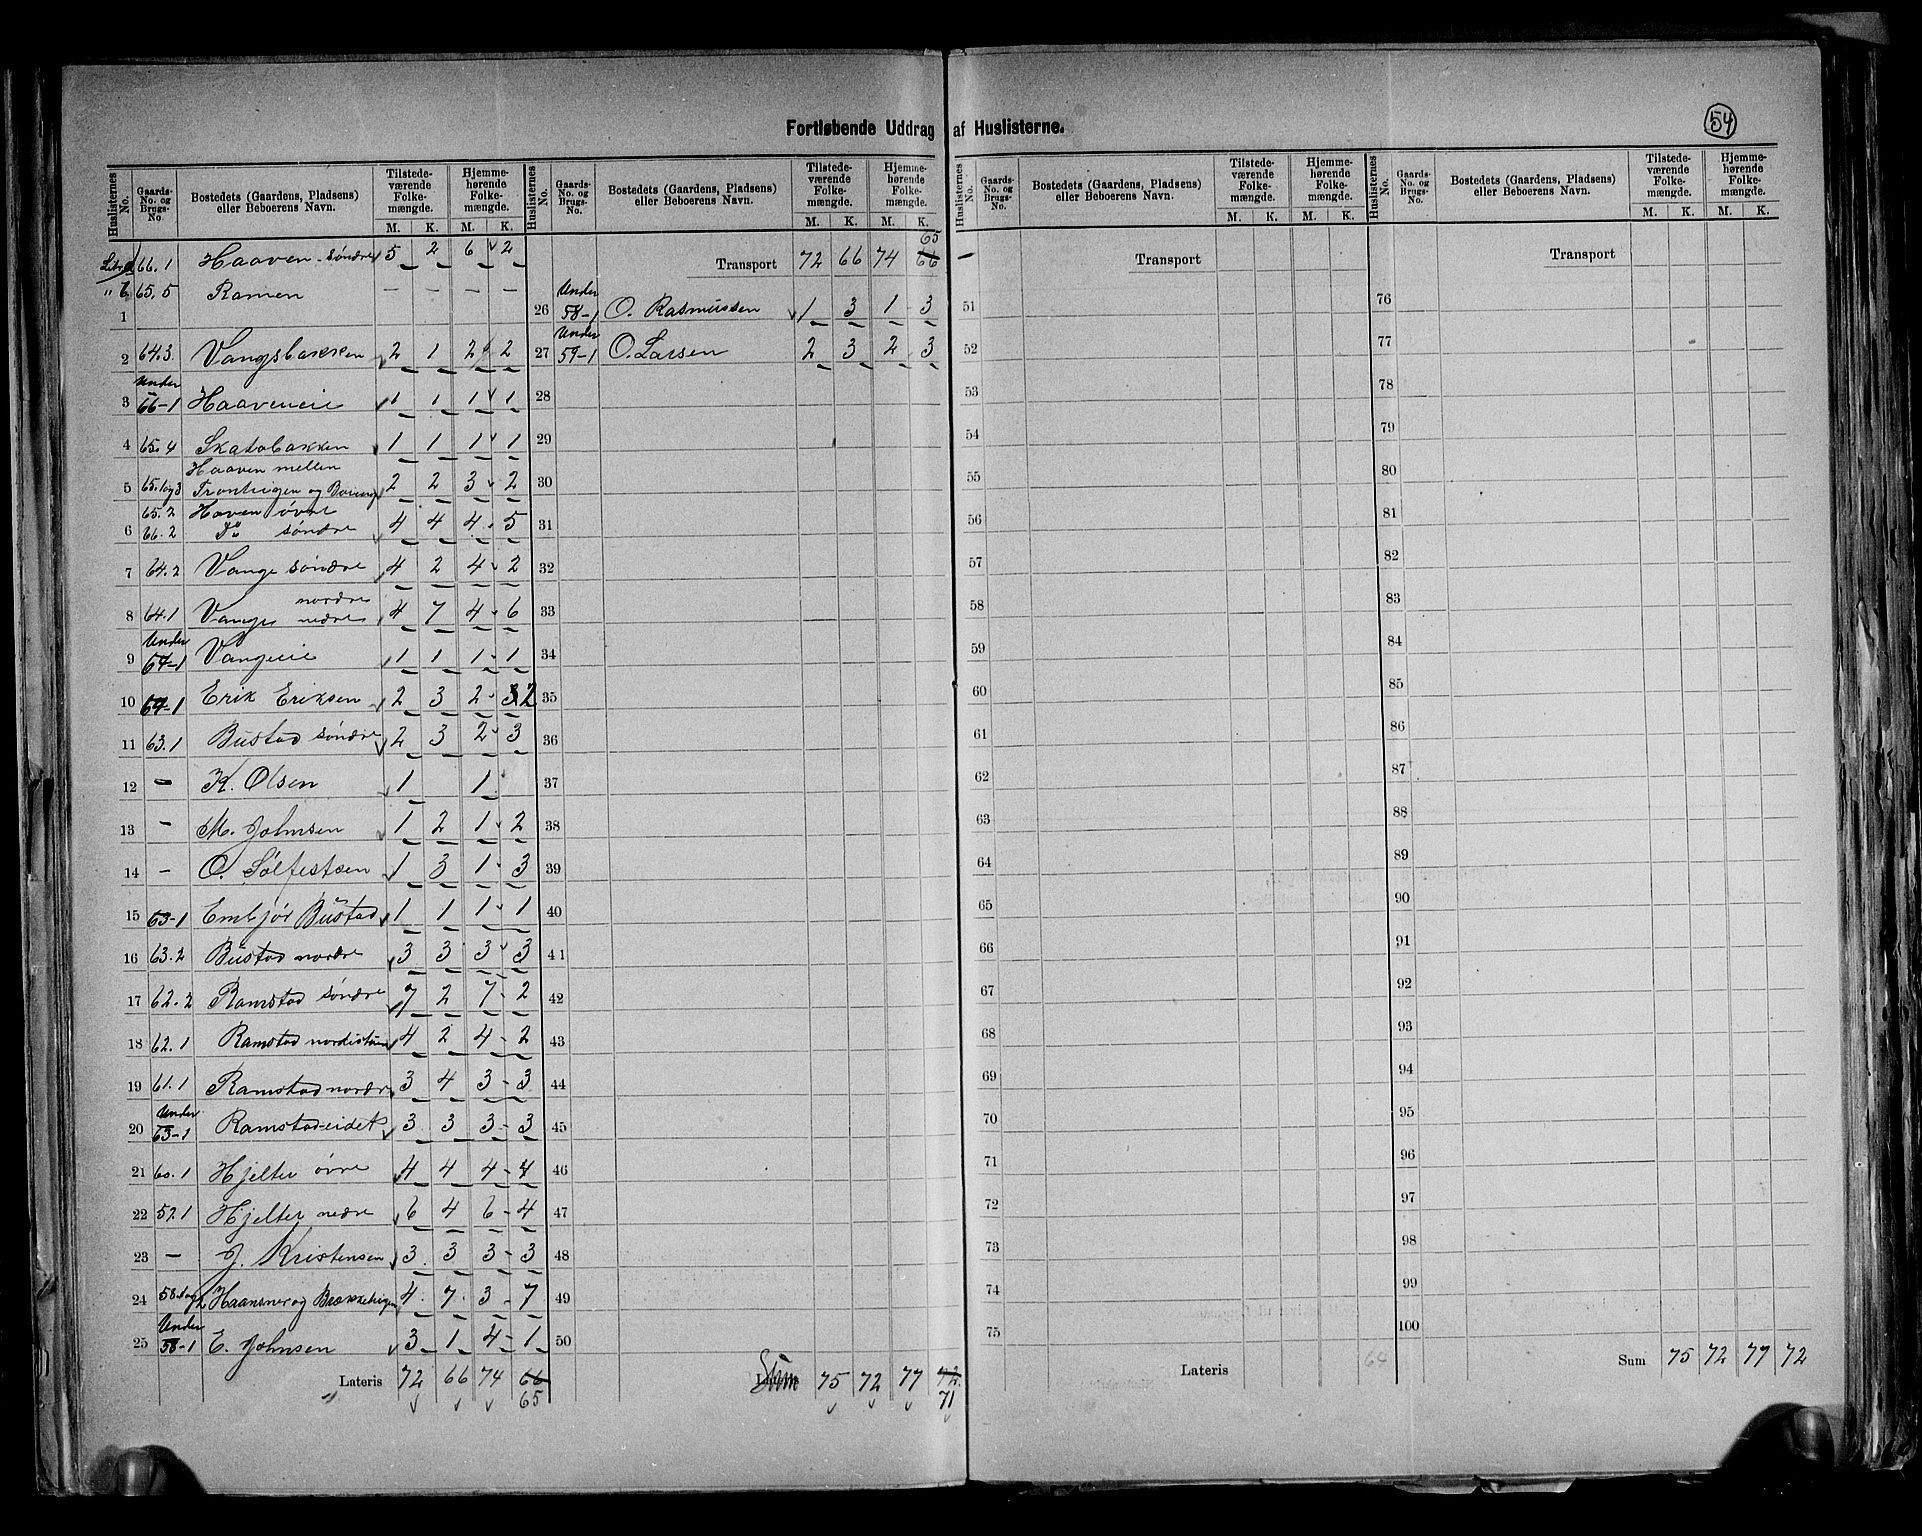 Fortløbende Uddrag af Huslisterne.
54
Huslisternes No. Gaards-No. og Brugs-No. Bostedets (Gaardens, Pladsens) eller Beboerens Navn. Tilstede-værende Folke-mængde. M. K. Hjemme-hørende Folke-mængde. M. K.
66.1 Haaven søndre 5 2 6 2
65.5 Ramen — — — —
1
2 64.3 Vangsbakken 2 1 2 2
3 Under 66-1 Haaveneie 1 1 1 1
4 65.4 Skatabakken 1 1 1 1
Haaven mellem
5 65.1og3 2 2 3 2
65.2 Haven øvre
6 66.2 Do søndre 4 4 4 5
7 64.2 Vange søndre 4 2 4 2
8 64.1 Vange nordre nedre 4 7 4 6
9 Under 64-1 Vangeeie 1 1 1 1
10 64-1 Erik Eriksen 2 3 2 3 2
11 63.1 Bustad søndre 2 3 2 3
12 — K. Olsen 1 1
13 — M. Johnsen 1 2 1 2
14 — O. Sølfestsen 1 3 1 3
15 63-1 Embjør Bustad 1 1 1 1
16 63.2 Bustad nordre 3 3 3 3
17 62.2 Ramstad søndre 7 2 7 2
18 62.1 Ramstad 4 2 4 2
19 61.1 Ramstad nordre 3 4 3 3
20 Under 63-1 Ramstadeidet 3 3 3 3
21 60.1 Hjelter øvre 4 4 4 4
22 59.1 Hjelter nedre 6 4 6 4
23 — J. Kristensen 3 3 3 3
24 58.1og2 4 7 3 7
25 Under 58-1 E. Johnsen 3 1 4 1
Lateris 72 66 74 66
65
Huslisternes No. Gaards-No. og Brugs-No. Bostedets (Gaardens, Pladsens) eller Beboerens Navn. Tilstede-værende Folke-mængde. M. K. Hjemme-hørende Folke-mængde. M. K.
65
Transport 72 66 74 66
26 Under 58-1 O. Rasmussen 1 3 1 3
27 Under 59-1 O. Larsen 2 3 2 3
28
29
30
31
32
33
34
35
36
37
38
39
40
41
42
43
44
45
46
47
48
49
50
Sum 75 72 77 72
71
Huslisternes No. Gaards-No. og Brugs-No. Bostedets (Gaardens, Pladsens) eller Beboerens Navn. Tilstede-værende Folke-mængde. M. K. Hjemme-hørende Folke-mængde. M. K.
— Transport
51
52
53
54
55
56
57
58
59
60
61
62
63
64
65
66
67
68
69
70
71
72
73
74
75
Lateris 64
Huslisternes No. Gaards-No. og Brugs-No. Bostedets (Gaardens, Pladsens) eller Beboerens Navn. Tilstede-værende Folke-mængde. M. K. Hjemme-hørende Folke-mængde. M. K.
Transport
76
77
78
79
80
81
82
83
84
85
86
87
88
89
90
91
92
93
94
95
96
97
98
99
100
Sum 75 72 77 72